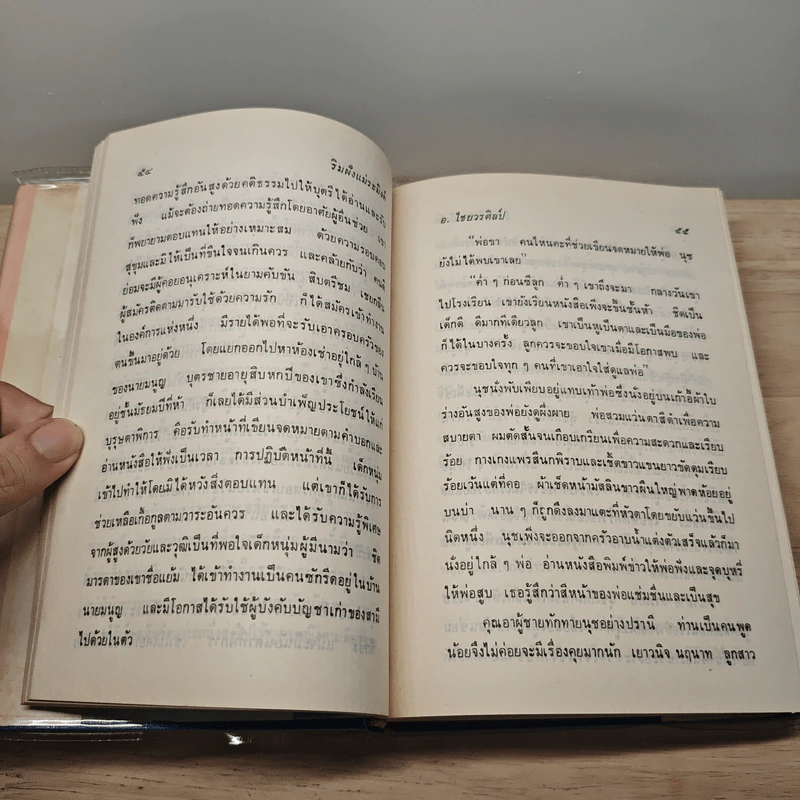 ๕๔
ริมฝั่งแม่ระมิงค์
ทอดความรู้สึกอันสูงด้วยคติธรรมไปให้บุตรีได้อ่านและรับ
ฟัง แม้จะต้องถ่ายทอดความรู้สึกโดยอาศัยผู้อื่นช่วย เขา
ก็พยายามตอบแทนให้อย่างเหมาะสม ด้วยความรอบคอบ
สุขุมและมิให้เป็นที่ขืนใจจนเกินควร และคล้ายกับว่า คนดี
ย่อมจะมีผู้คอยอนุเคราะห์ในยามคับขัน สิบตรีชม เชยกลิ่น
ผู้สมัครติดตามมารับใช้ด้วยความรัก ก็ได้สมัครเข้าทำงาน
ในองค์การแห่งหนึ่ง มีรายได้พอที่จะรับเอาครอบครัวของ
ตนขึ้นมาอยู่ด้วย โดยแยกออกไปหาห้องเช่าอยู่ใกล้ ๆ บ้าน
ของนายมนูญ บุตรชายอายุสิบหกปีของเขาซึ่งกำลังเรียน
อยู่ชั้นมัธยมปีที่ห้า ก็เลยได้มีส่วนบำเพ็ญประโยชน์ให้แก่
บุรุษตาพิการ คือรับทำหน้าที่เขียนจดหมายตามคำบอกและ
อ่านหนังสือให้ฟังเป็นเวลา การปฏิบัติหน้าที่นี้ เด็กหนุ่ม
เข้าไปทำให้โดยมิได้หวังสิ่งตอบแทน แต่เขาก็ได้รับการ
ช่วยเหลือเกื้อกูลตามวาระอันควร และได้รับความรู้พิเศษ
จากผู้สูงด้วยวัยและวุฒิเป็นที่พอใจเด็กหนุ่มผู้มีนามว่า ชิต
มารดาของเขาชื่อแย้ม ได้เข้าทำงานเป็นคนซักรีดอยู่ในบ้าน
นายมนูญ และมีโอกาสได้รับใช้ผู้บังคับบัญชาเก่าของสามี
ไปด้วยในตัว
อ. ไชยวรศิลป์
๕๕
"พ่อขา คนไหนคะที่ช่วยเขียนจดหมายให้พ่อ นุช
ยังไม่ได้พบเขาเลย"
"ค่ำ ๆ ก่อนซีลูก ค่ำ ๆ เขาถึงจะมา กลางวันเขา
ไปโรงเรียน เขายังเรียนหนังสือเพิ่งจะขึ้นชั้นห้า ชิตเป็น
เด็กดี ดีมากทีเดียวลูก เขาเป็นหูเป็นตาและเป็นมือของพ่อ
ก็ได้ในบางครั้ง ลูกควรจะขอบใจเขาเมื่อมีโอกาสพบ และ
ควรจะขอบใจทุก ๆ คนที่เขาเอาใจใส่ดูแลพ่อ"
นุชนั่งพับเพียบอยู่แทบเท้าพ่อซึ่งนั่งอยู่บนเก้าอี้ผ้าใบ
ร่างอันสูงของพ่อยังดูผึ่งผาย พ่อสวมแว่นตาสีดำเพื่อความ
สบายตา ผมตัดสั้นจนเกือบเกรียนเพื่อความสะดวกและเรียบ
ร้อย กางเกงแพรสีนกพิราบและเชิ้ตขาวแขนยาวขัดดุมเรียบ
ร้อยเว้นแต่ที่คอ ผ้าเช็ดหน้ามัสลินขาวผืนใหญ่พาดห้อยอยู่
บนบ่า นาน ๆ ก็ถูกดึงลงมาแตะที่หัวตาโดยขยับแว่นขึ้นไป
นิดหนึ่ง นุชเพิ่งจะออกจากครัวอาบน้ำแต่งตัวเสร็จแล้วก็มา
นั่งอยู่ใกล้ ๆ พ่อ อ่านหนังสือพิมพ์ข่าวให้พ่อฟังและจุดบุหรี่
ให้พ่อสูบ เธอรู้สึกว่าสีหน้าของพ่อแช่มชื่นและเป็นสุข
คุณอาผู้ชายทักทายนุชอย่างปรานี ท่านเป็นคนพูด
น้อยจึงไม่ค่อยจะมีเรื่องคุยมากนัก เยาวนิจ นฤนาท ลูกสาว